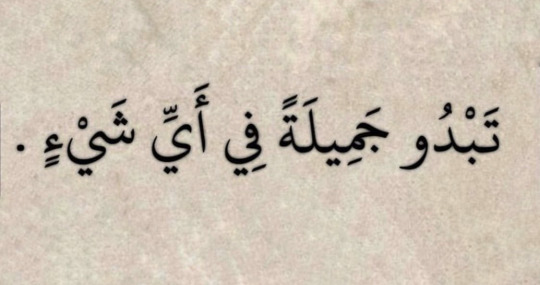 تَبْدُو جَمِيلَةً فِي أَيِّ شَيْءٍ .